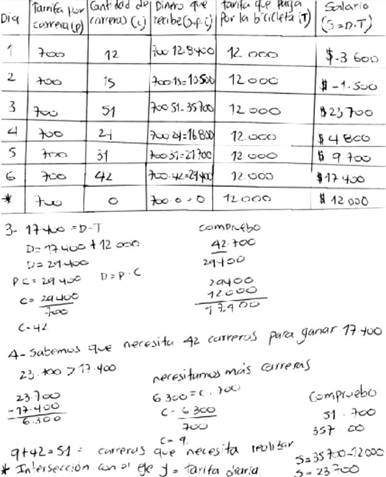 Día | Tarifa por carrera (p) | Cantidad de carreras (c) | Dinero que recibe (D=p.c) | tarifa que paga Por la bicicleta (T) | Salario (S=D-T)
1 | 700 | 12 | 700.12=8400 | 12.000 | $-3.600
2 | 700 | 15 | 700.15=10500 | 12.000 | $-1.500
3 | 700 | 51 | 700.51=35700 | 12.000 | $23700
4 | 700 | 24 | 700.24=16800 | 12.000 | $4800
5 | 700 | 31 | 700.31=21700 | 12.000 | $9.700
6 | 700 | 42 | 700.42=29400 | 12.000 | $17400
* | 700 | 0 | 700.0=0 | 12000 | $12000
3- 17400=D-T
D=17400+12000
D=29400
P.C=29400 D=P.C
C=29400
700
C=42
compruebo
42.700
29400
29400
12000
17400
4-Sabemos que necesita 42 carreras para ganar 17400
23.700>17.400
23700
-17.400
6.300
necesitamos más carreras
6300=c.700
C=6300
700
C=9
compruebo
51.700
35700
9+42=51= carreras que necesita realizar
S=35700-12000
* Intersección con el eje y=Tarifa diaria.
S=23700